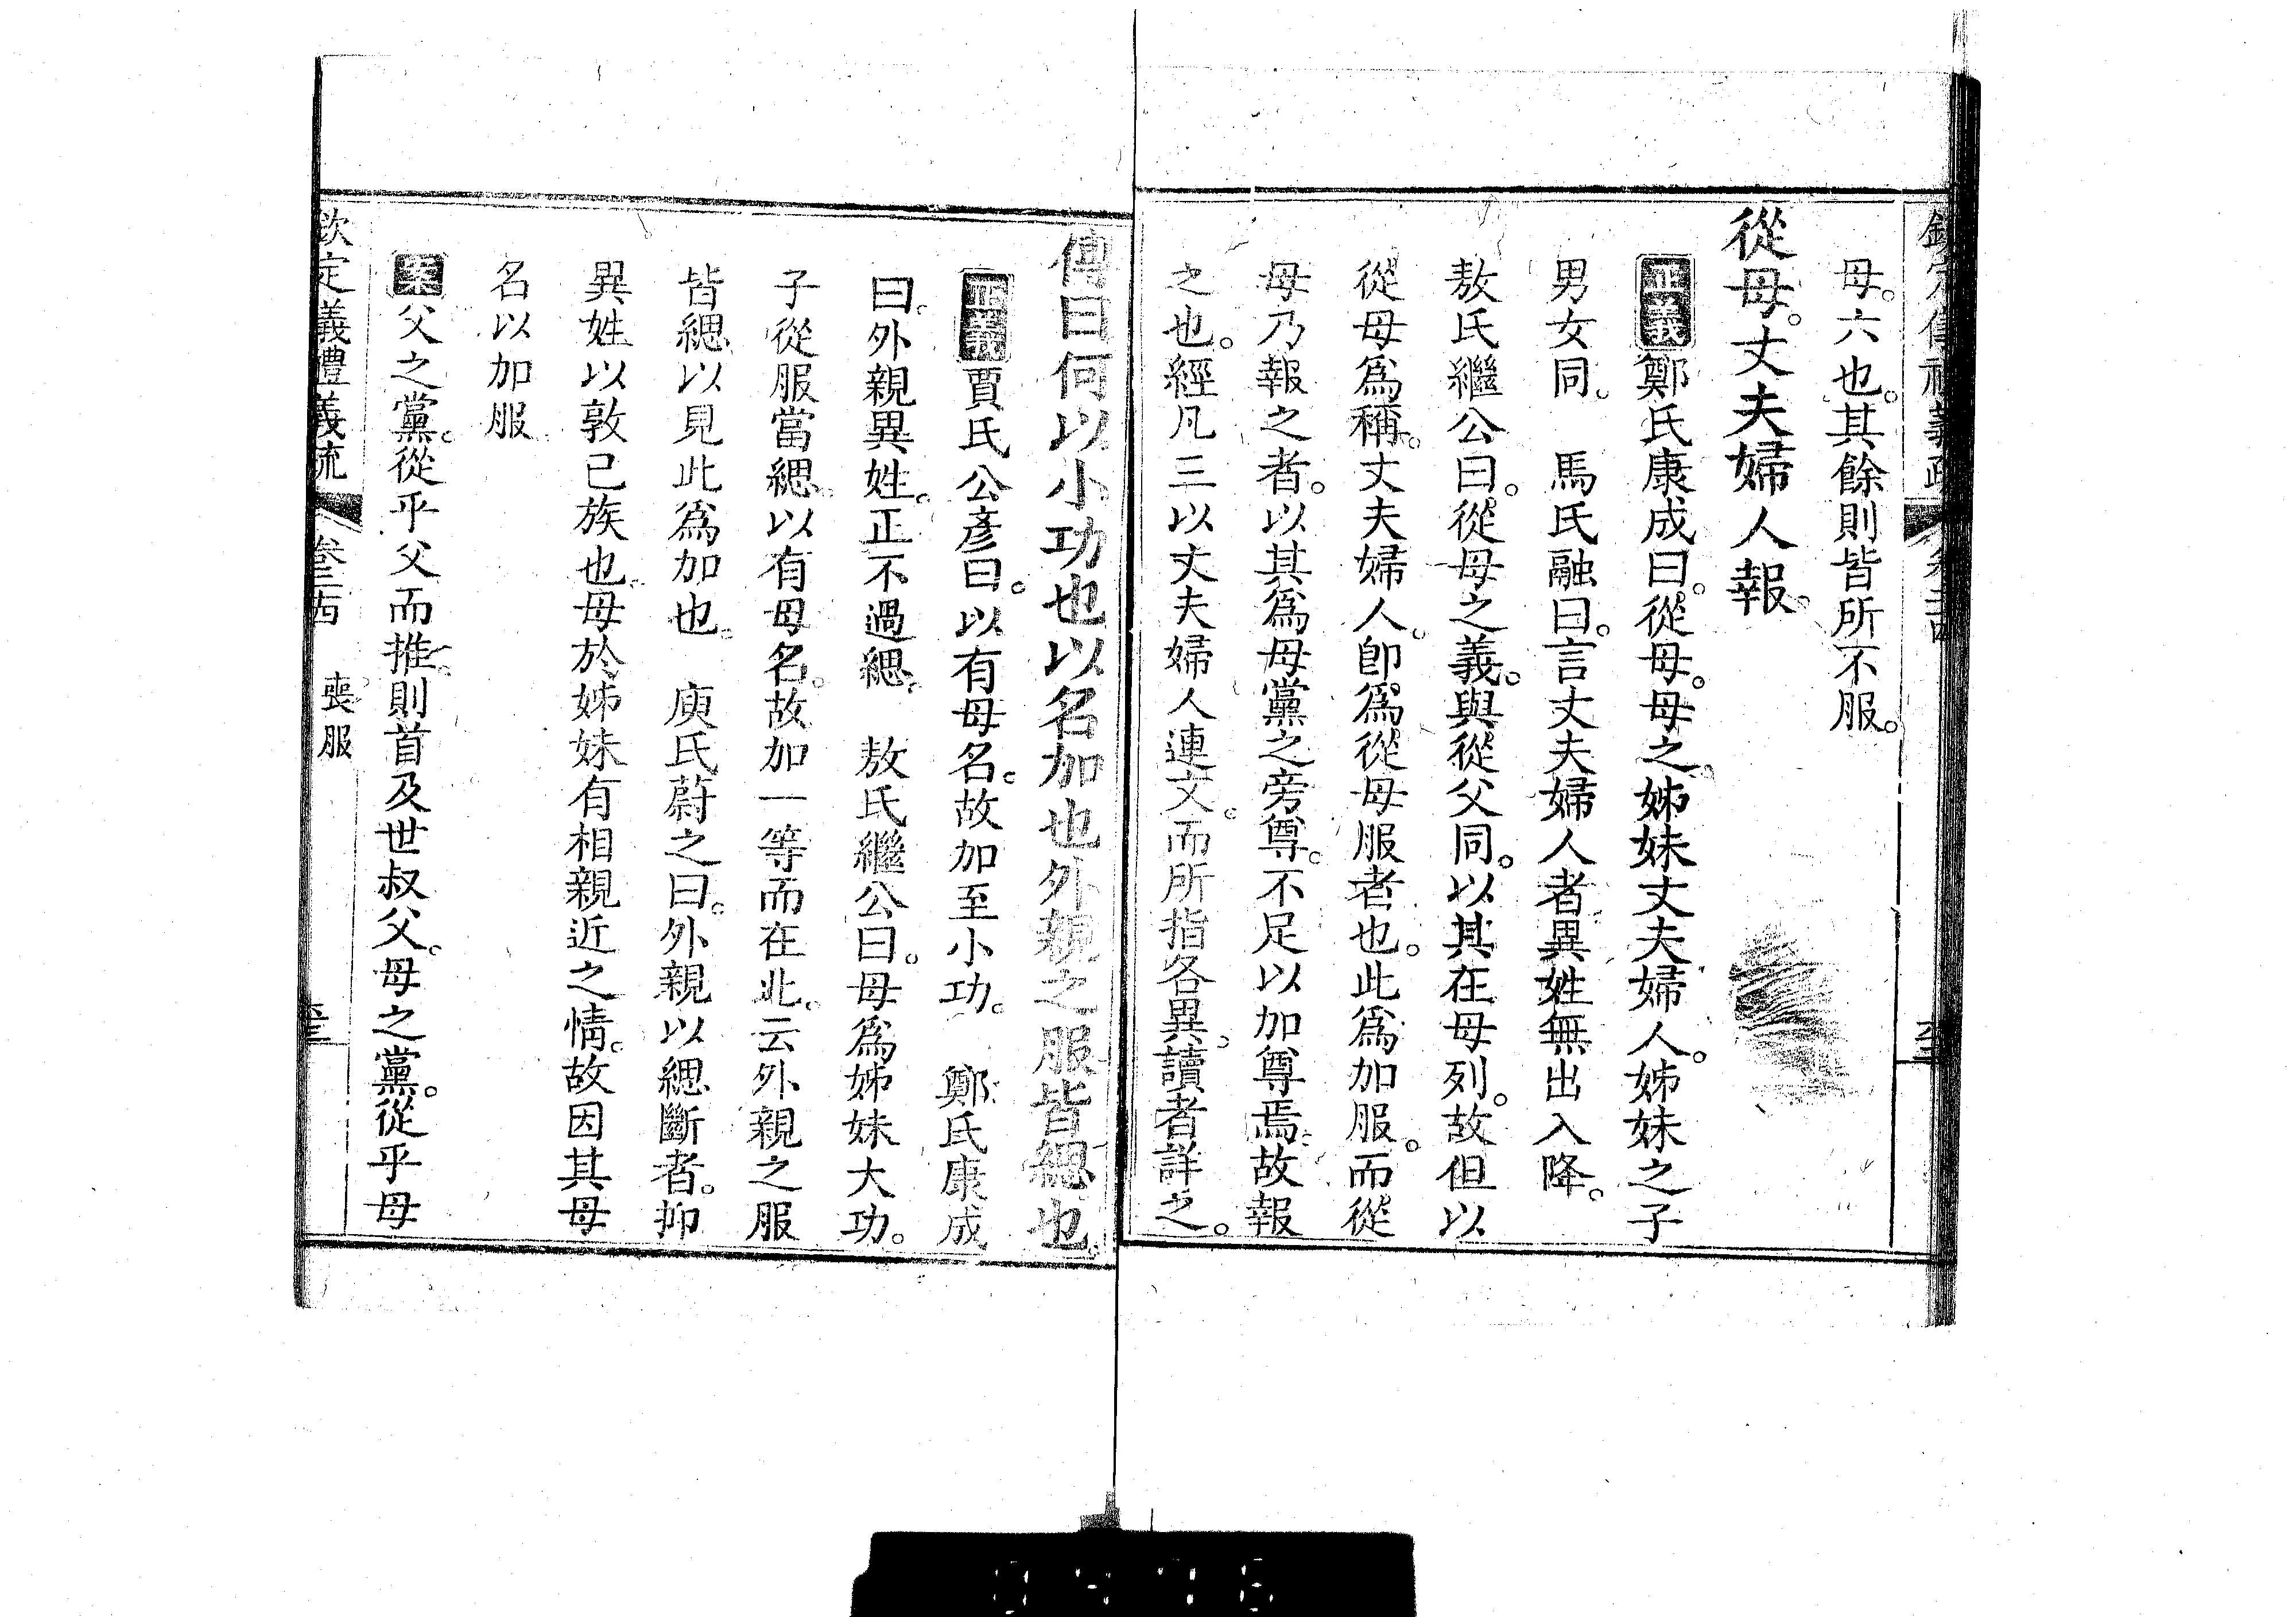 欽定儀禮義疏 卷二十四
母。六也。其餘則皆所不服。
從母。丈夫婦人報。
正義鄭氏康成曰。從母。母之姊妹丈夫婦人。姊妹之子
男女同。 馬氏融曰。言丈夫婦人者異姓無出入降。
敖氏繼公曰。從母之義。與從父同。以其在母列。故但以
從母爲稱。丈夫婦人。卽爲從母服者也。此爲加服。而從
母乃報之者。以其爲母黨之旁尊。不足以加尊焉。故報
之也。經凡三以丈夫婦人連文。而所指各異。讀者詳之。
傳曰何以小功也以名加也外親之服皆緦也。
正義賈氏公彥曰。以有母名。故加至小功。 鄭氏康成
曰。外親異姓。正不過緦。 敖氏繼公曰。母爲姊妹大功。
子從服當緦。以有母名。故加一等而在此。云外親之服
皆緦以見此爲加也。 庾氏蔚之曰。外親以緦斷者。抑
異姓以敦己族也。母於姊妹有相親近之情。故因其母
名以加服
案父之黨。從乎父而推。則首及世叔父。母之黨。從乎母
欽定義禮義疏 卷二十四 喪服